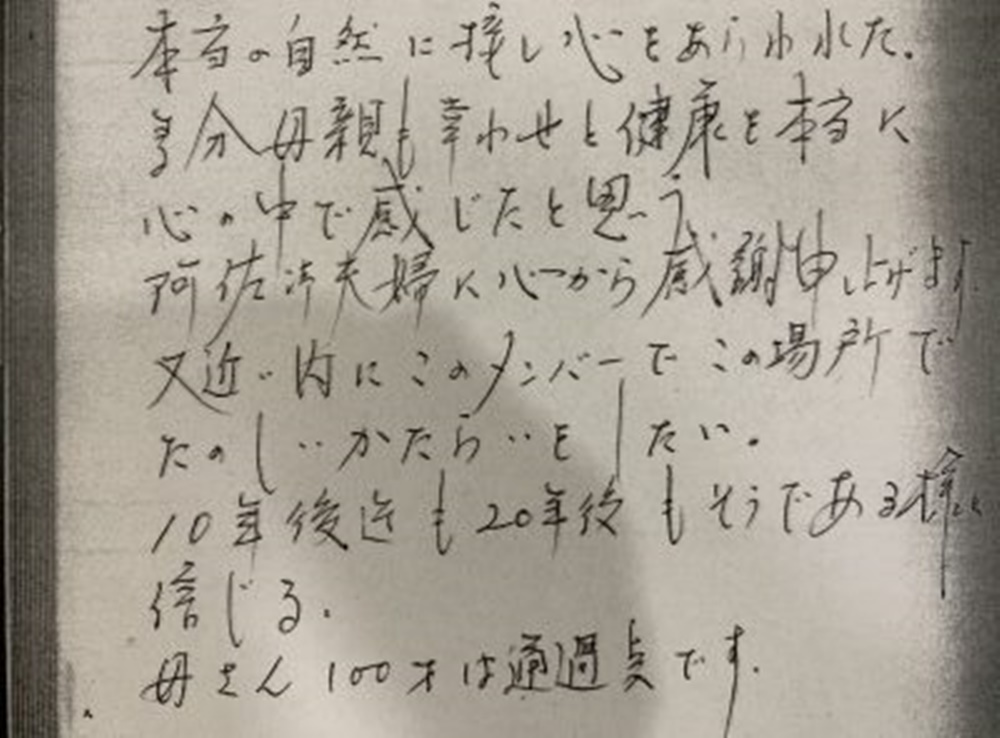 本当の自然に接し心をあらわれた。
多分母親も幸わせと健康を本当に
心の中で感じたと思う
阿佐沖夫婦に心から感謝申し上げます
又近い内にこのメンバーでこの場所で
たのしいかたらいをしたい。
10年後迄も20年後もそうである様に
信じる。
母さん100才は通過点です。